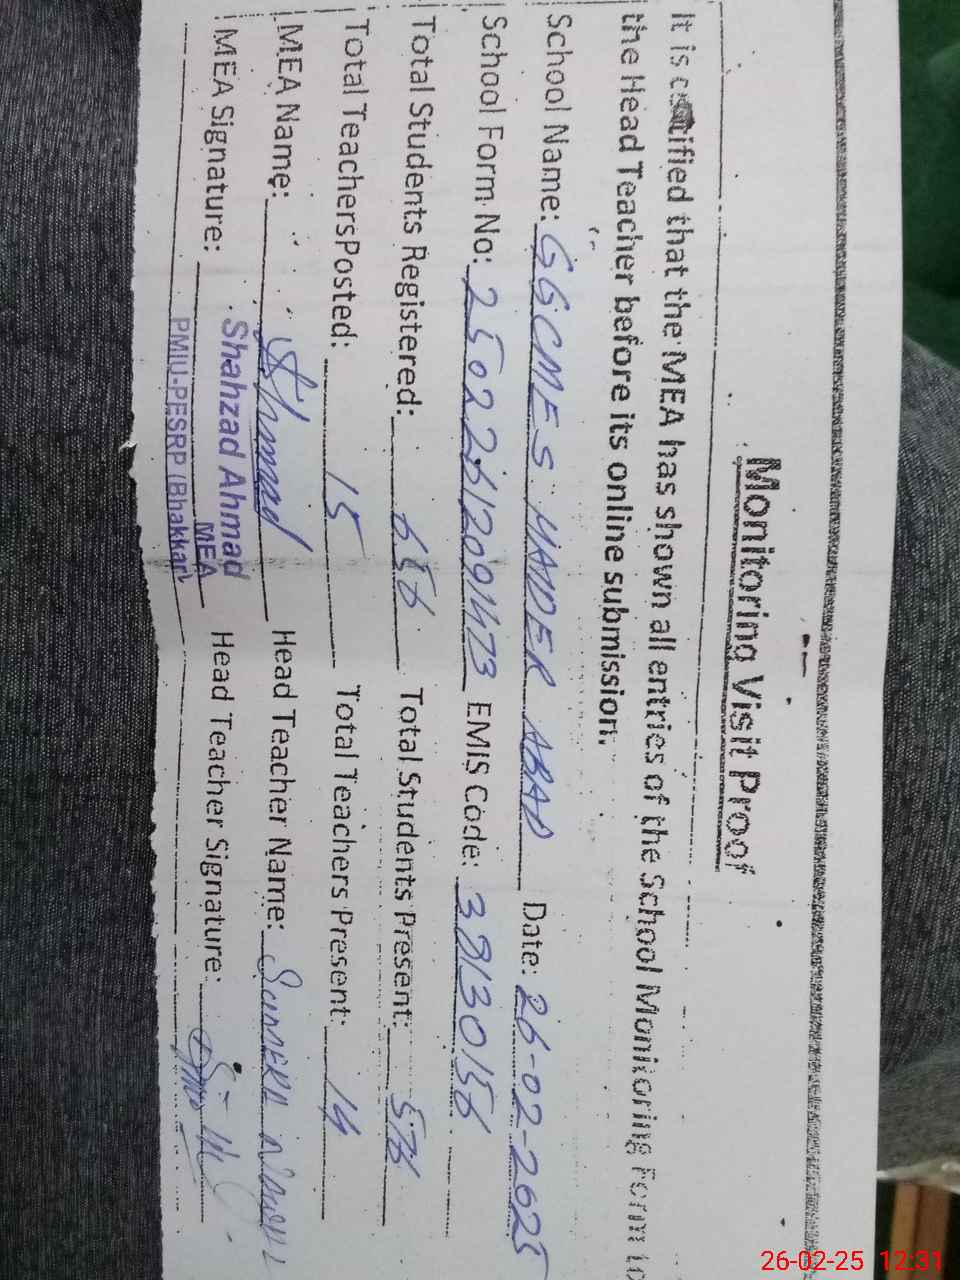 Monitoring Visit Proof
It is certified that the MEA has shown all entries of the School Monitoring Form to
the Head Teacher before its online submission.
School Name: GGCMES HAIDER ABAD Date: 26-02-2025
School Form No: EMIS Code: 38130156
Total Students Registered: 656 Total Students Present: 576
Total TeachersPosted: 15 Total Teachers Present: 14
MEA Name: Ahmad Head Teacher Name:
MEA Signature: Shahzad Ahmad Head Teacher Signature:
MEA
PMIU-PESRP (Bhakkar)
26-02-25 12:31